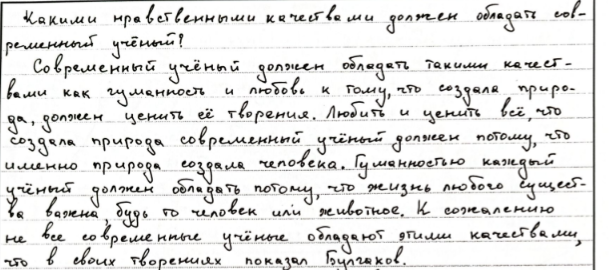 Какими нравственными качествами должен обладать сов-
ременный учёный?
Современный учёный должен обладать такими качест-
вами как гуманность и любовь к тому, что создала приро-
да, должен ценить её творения. Любить и ценить всё, что
создала природа современный учёный должен потому, что
именно природа создала человека. Гуманностью каждый
учёный должен обладать потому, что жизнь любого сущест-
ва важна, будь то человек или животное. К сожалению
не все современные учёные обладают этими качествами,
что в своих творениях показал Булгаков.